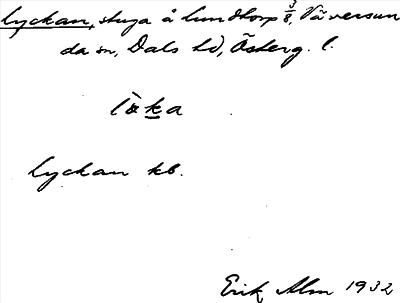 Lyckan, stuga å Lundtorp 3/8, Väversun
da sn, Dals hd, Österg. l.
lỳka
Lyckan kb.
Erik Alm 1932